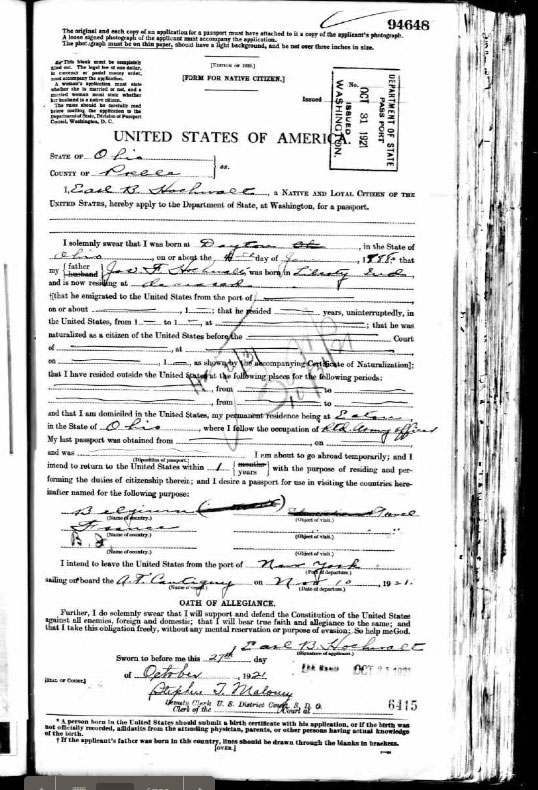 94648
The original and each copy of an application for a passport must have attached to it a copy of the applicant's photograph.
A loose signed photograph of the applicant must accompany the application.
The photograph must be on thin paper, should have a light background, and be not over three inches in size.
This blank must be completely
filled out. The legal fee of one dollar,
in currency or postal money order,
must accompany the application.
A woman's application must state
whether she is married or not, and a
married woman must state whether
her husband is a native citizen.
[FORM FOR NATIVE CITIZEN.]
Issued
DEPARTMENT OF STATE
PASSPORT
No.
OCT 31 1921
ISSUED
WASHINGTON.
UNITED STATES OF AMERICA.
STATE OF Ohio
COUNTY OF
ss.
I, Earl B. Hochwalt, a NATIVE AND LOYAL CITIZEN OF THE
UNITED STATES, hereby apply to the Department of State, at Washington, for a passport.
I solemnly swear that I was born at Dayton, in the State of
Ohio, on or about the day of, that
my { father husband } Hochwalt, was born in Liberty Ind
and is now residing at deceased
†[that he emigrated to the United States from the port of
on or about, 1; that he resided years, uninterruptedly, in
the United States, from 1 to 1, at; that he was
naturalized as a citizen of the United States before the Court
of, at
on, 1, as shown by the accompanying Certificate of Naturalization];
that I have resided outside the United States at the following places for the following periods:
, from to
, from to
and that I am domiciled in the United States, my permanent residence being at Eaton
in the State of Ohio, where I follow the occupation of Army officer
My last passport was obtained from, on
and was
(Disposition of passport.)
I am about to go abroad temporarily; and I
intend to return to the United States within 1 { months years } with the purpose of residing and per-
forming the duties of citizenship therein; and I desire a passport for use in visiting the countries here-
inafter named for the following purpose:
Belgium Travel
(Name of country.) (Object of visit.)
France " "
(Name of country.) (Object of visit.)
(Name of country.) (Object of visit.)
I intend to leave the United States from the port of New York
(Port of departure.)
sailing on board the Cantigny on Nov 10, 1921.
(Name of vessel.) (Date of departure.)
OATH OF ALLEGIANCE.
Further, I do solemnly swear that I will support and defend the Constitution of the United States
against all enemies, foreign and domestic; that I will bear true faith and allegiance to the same; and
that I take this obligation freely, without any mental reservation or purpose of evasion: So help me God.
Earl B. Hochwalt
(Signature of applicant.)
Sworn to before me this 27th day
of October, 1921
[SEAL OF COURT.]
Stephen T. Maloney
Deputy Clerk U. S. District Court, S. D. O.
Clerk of the Court at
6415
* A person born in the United States should submit a birth certificate with his application, or if the birth was
not officially recorded, affidavits from the attending physician, parents, or other persons having actual knowledge
of the birth.
† If the applicant's father was born in this country, lines should be drawn through the blanks in brackets.
[OVER.]